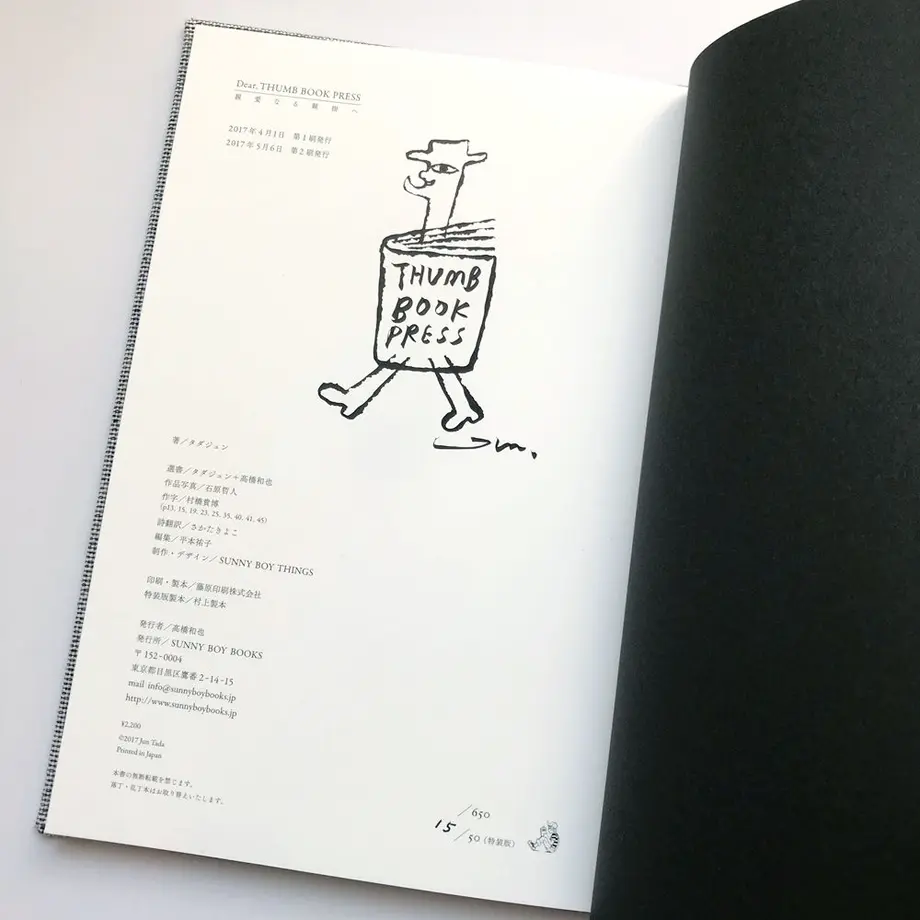 Dear, THUMB BOOK PRESS
親愛なる親指へ
2017年4月1日 第1刷発行
2017年5月6日 第2刷発行
THUMB
BOOK
PRESS
Jun.
著／タダジュン
選書／タダジュン＋高橋和也
作品写真／石原哲人
作字／村橋貴博
(p13, 15, 19, 23, 25, 35, 40, 41, 45)
詩翻訳／さかたりよこ
編集／平本祐子
制作・デザイン／SUNNY BOY THINGS
印刷・製本／藤原印刷株式会社
特装版製本／村上製本
発行者／高橋和也
発行所／SUNNY BOY BOOKS
〒152-0004
東京都目黒区鷹番2-14-15
mail info@sunnyboybooks.jp
http://www.sunnyboybooks.jp
¥2,200
©2017 Jun Tada
Printed in Japan
本書の無断転載を禁じます。
落丁・乱丁本はお取り替えいたします。
/650
15/50（特装版）